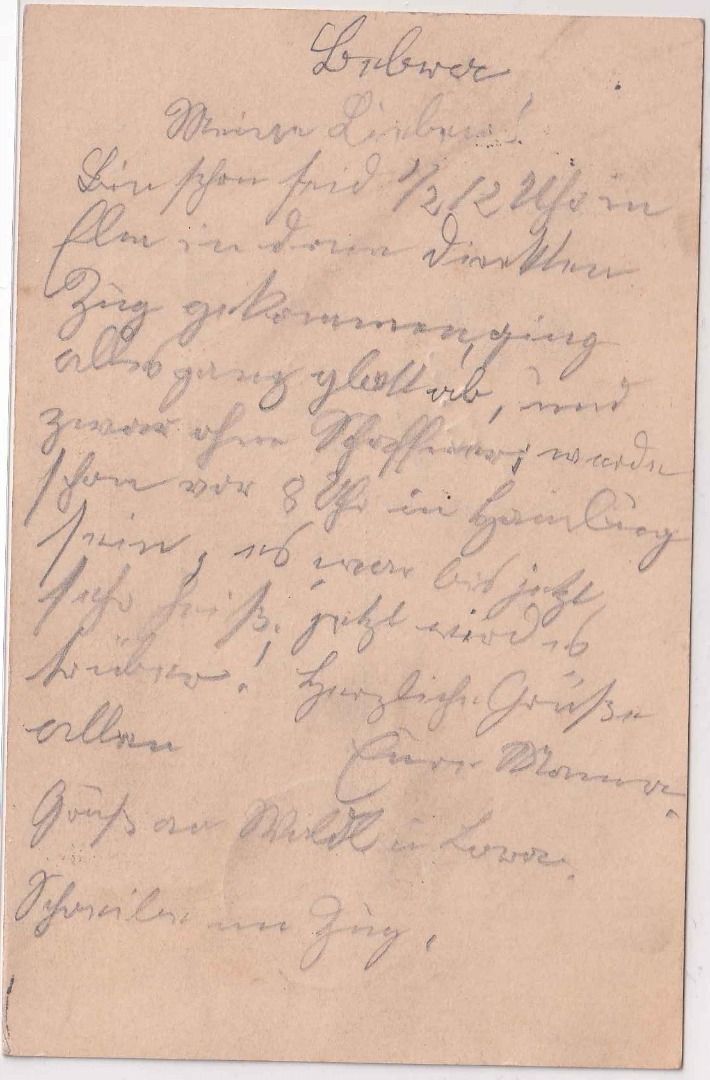 Meine Lieben!
Bin schon seid 1/2 12 Uhr in
Elm in denn direkten
Zug gekommen, ging
alles ganz glatt ab, und
zwar ohne Schaffner; werde
schon vor 8 Uhr in Hamburg
sein, es war bis jetzt
sehr heiß; jetzt wird es
trüber! Herzliche Grüße
allen Eure Mama.
Gruß an Waldl u
Schreibe im Zug.